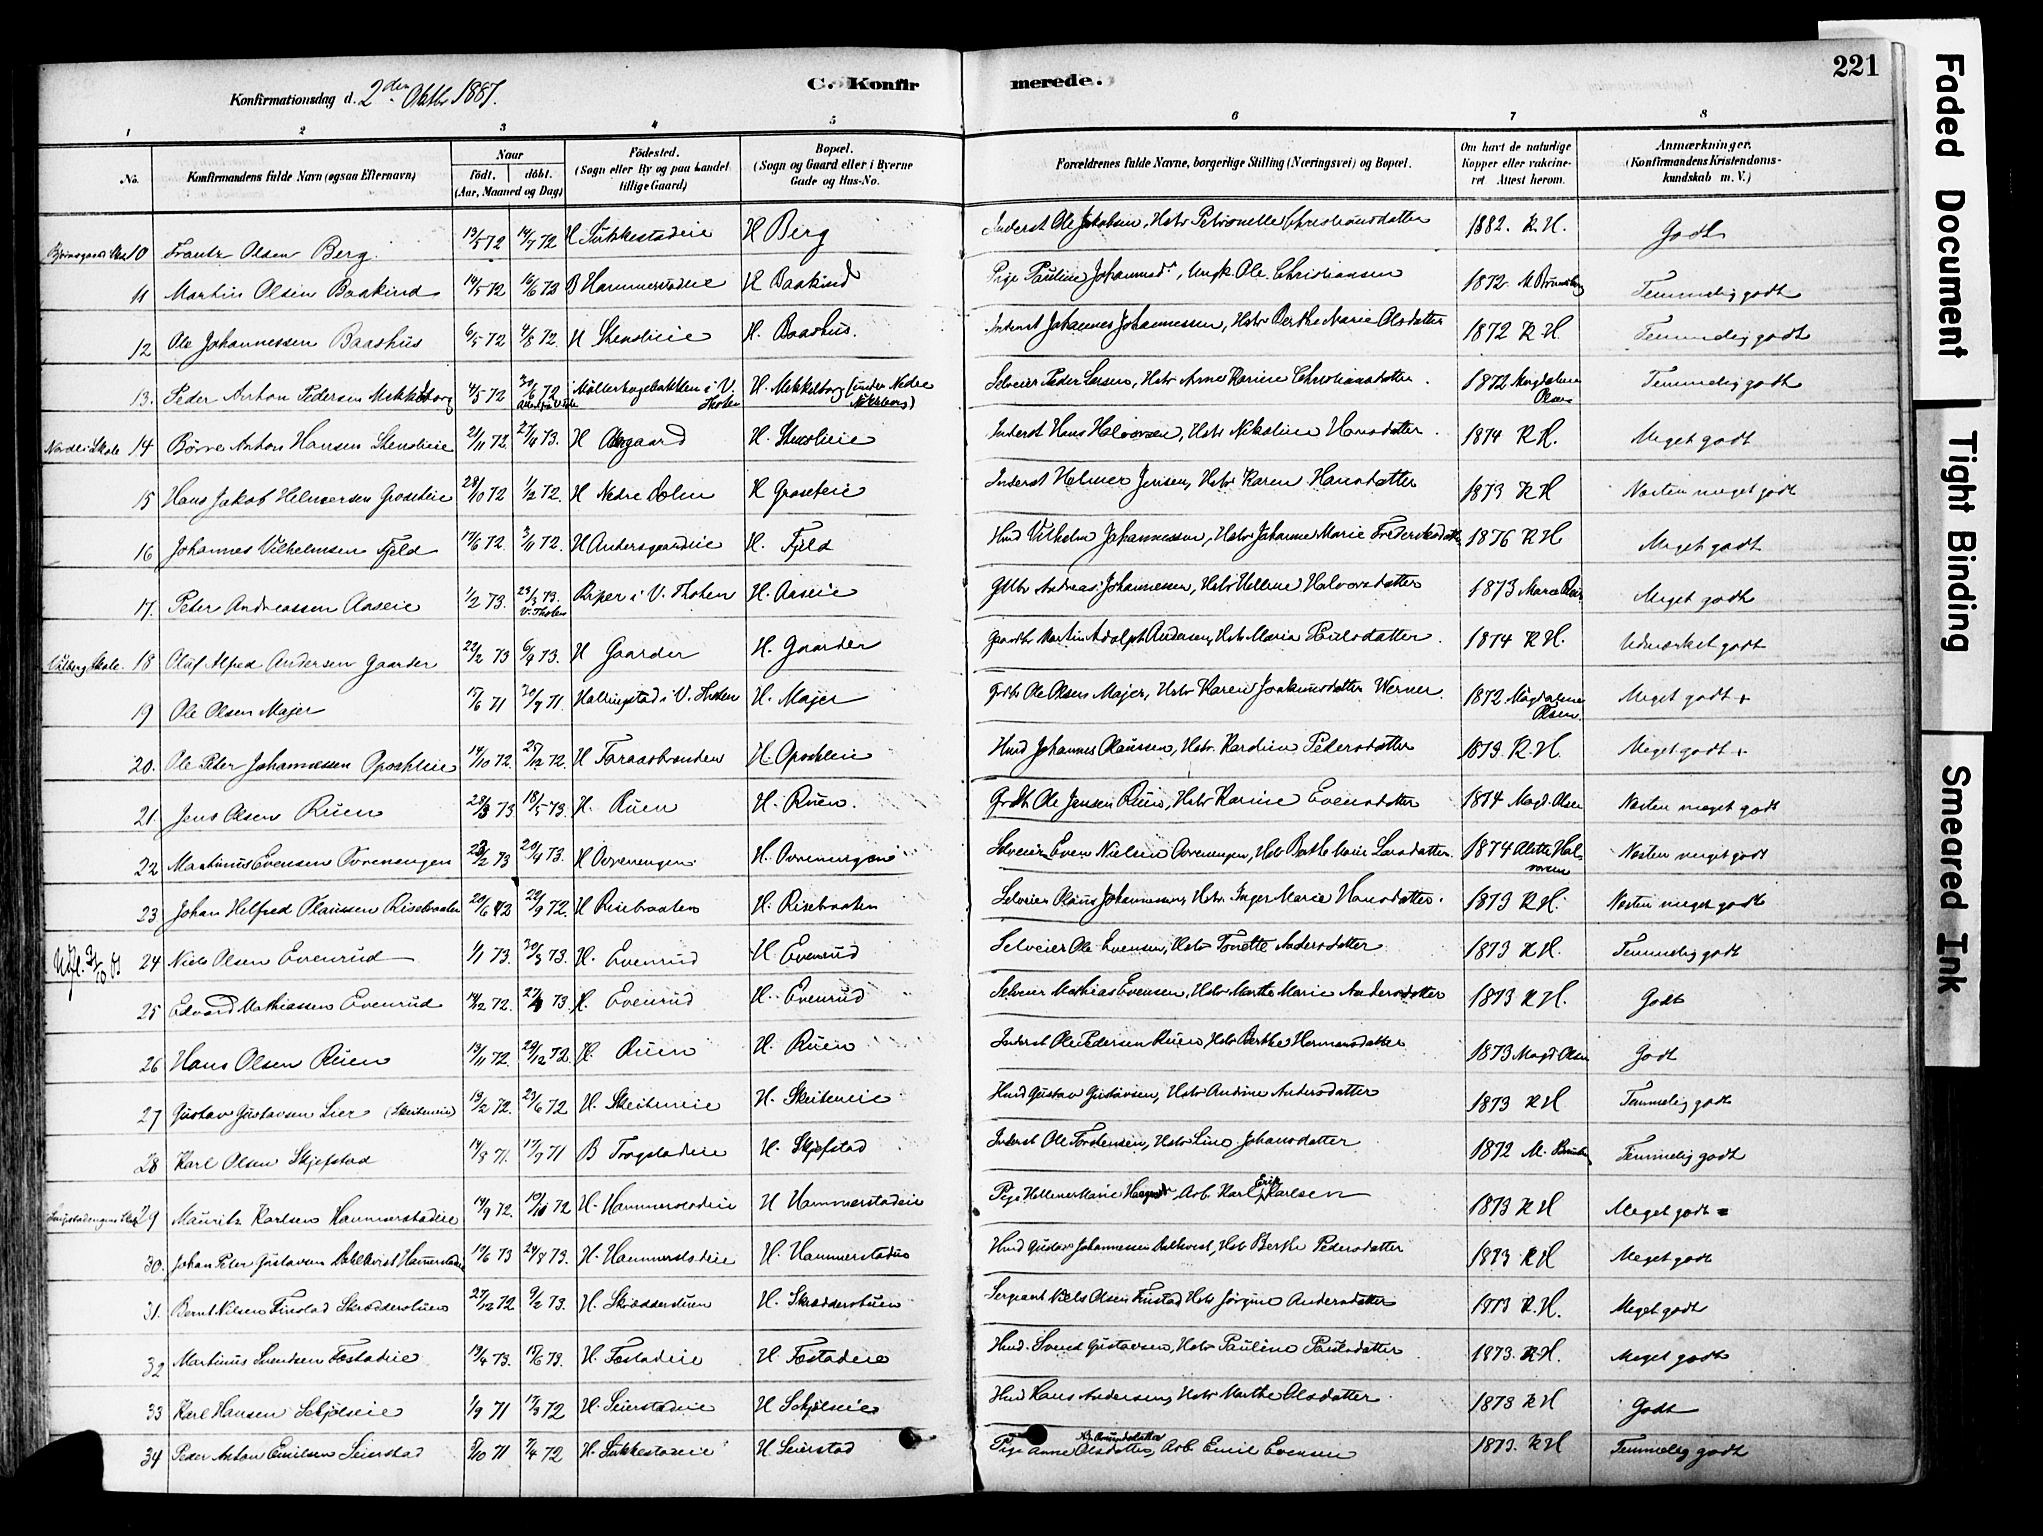 Konfirmationsdag d. 2den Oktbr 1887.
C. Konfirmerede.
221
1 2 3 4 5 6 7 8
No. Konfirmandens fulde Navn (ogsaa Efternavn) Naar født. døbt. (Aar, Maaned og Dag) Fødested. (Sogn eller By og paa Landet tillige Gaard) Bopæl. (Sogn og Gaard eller i Byerne Gade og Hus-No. Forældrenes fulde Navne, borgerlige Stilling (Næringsvei) og Bopæl. Om havt de naturlige Kopper eller vakcineret Attest herom. Anmærkninger. (Konfirmandens Kristendomskundskab m. V.)
10 Frantz Olsen Berg 13/5 72 14/7 72 H Sukkestadeie H Berg Inderst Ole Jakobsen, Hstr Petronelle Christiansdatter 1882. K. H. Godt
11 Martin Olsen Baakind 14/5 72 16/6 72 B Hammerstadeie H Baakind Pige Pauline Johannesdr, Ungk. Ole Christiansen 1872 Temmelig godt
12 Ole Johannessen Baashus 6/5 72 4/8 72. H Stensbieie H. Baashus. Inderst Johannes Johannessen, Hstr Berthe Marie Olsdatter 1872 K H. Temmelig godt
13. Peder Anton Pedersen Mekkelborg 4/5 72 30/6 72 i V. Thoten H. Mekkelborg (under Nedre Selveier Peder Larsen, Hstr Anne Karine Christiansdatter. 1872 Magdalene Olsen Temmelig godt
Nordli Skole 14 Børre Anton Hansen Stensbieie 21/11 72. 27/4 73. H Aagaard H. Stensbieie Inderst Hans Halvorsen, Hstr Nikoline Hansdatter. 1874 K H. Meget godt
15 Hans Jakob Helmersen Groseteie 28/10 72 1/2 72 H Nedre Dolm H Groseteie Inderst Helmer Jensen, Hstr Karen Hansdatter 1873 K H Næsten meget godt
16 Johannes Vilhelmsen Fjeld 14/6 72. 3/11 72. H Andersgaardeie H. Fjeld Hmd Vilhelm Johannessen, Hstr Johanne Marie Frederiksdatter 1876 K H Meget godt
17. Peter Andreassen Aaseie 1/2 73. 23/3 73. V. Thoten Riper i V. Thoten H. Aaseie Andreas Johannessen, Hstr Hellene Halvorsdatter 1873 Meget godt
18 Oluf Alfred Andersen Gaarder 22/2 73 6/4 73. H Gaarder H. Gaarder Martin Adolph Andersen, Hstr Maria Paulsdatter. 1874 K H. Udmærket godt
19 Ole Olsen Majer 15/6 71 30/7 71. Hallingstad i V. Thoten H. Majer Ole Olsen Majer, Hstr Karen Joakimsdatter Werner. 1872 Magdalene Olsen Meget godt +
20. Ole Peter Johannessen Opsahleie 14/10 72. 25/12 72. H Taraasbraaden H. Opsahleie Hmd Johannes Olaussen, Hstr. Kardine Pedersdatter 1873. K. H. Meget godt +
21. Jens Olsen Ruen 28/3 73 18/5 73. H. Ruen H. Ruen. Ole Jensen Ruen, Hstr Karine Evensdatter 1874 Magd. Olsen Næsten meget godt
22 Martinus Evensen Avrenengen 23/2 73 20/4 73. H Avrenengen H. Avrenengen Selveier Even Nielsen Avrenengen, Hstr Berthe Marie Larsdatter. 1874 Alette Halvorsen Næsten meget godt
23 Johan Hilfred Olaussen Risebraaten 20/6 72 22/9 72. H Risebraaten H. Risebraaten Selveier Olaus Johannessen, Hstr. Inger Marie Hansdatter. 1873 K H. Næsten meget godt
24 Niels Olsen Evenrud 1/1 73. 30/3 73. H. Evenrud H. Evenrud Selveier Ole Evensen, Hstr Tonette Andersdatter 1873 K H. Temmelig godt
25 Edvard Mathiassen Evenrud 14/12 72. 27/4 73 H. Evenrud H. Evenrud Selveier Mathias Evensen, Hstr Marthe Marie Andersdatter 1873 K H. Godt
26 Hans Olsen Ruen 13/11 72. 29/12 72. H. Ruen H. Ruen Inderst Ole Pedersen Ruen, Hstr Berthe Hermansdatter 1873 Magd. Olsen Godt
27 Gustav Gustavsen Lier (Skeiteneie) 13/2 72. 23/6 72 H. Skeiteneie H. Skeiteneie Hmd Gustav Gustavsen, Hstr Andrine Andersdatter 1873 K H Temmelig godt
28 Karl Olsen Skjefstad 14/8 71. 17/9 71 B Trogstadeie H. Skjefstad Inderst Ole Torstensen, Hstr Line Johansdatter 1872 Temmelig godt
29 Mauritz Karlsen Hammerstadeie 14/9 72. 10/10 72 H. Hammerstadeie H Hammerstadeie Pige Hellene Marie Arb. Karl Erik Karlsen 1873 K H Meget godt
30. Johan Peter Gustavsen Dahlkvist Hammerstadeie 14/6 73 24/8 73. H. Hammerstadeie H. Hammerstadeie Hmd Gustav Johannessen Dahlkvist, Hstr Berthe Pedersdatter 1873 K H Meget godt
31. Bernt Nilsen Finstad Skræddersbuen 27/12 72 9/2 73. H. Skræddersbuen H. Skræddersbuen Sergeant Niels Olsen Finstad Hstr Jørgine Andersdatter 1873 K. H. Meget godt
32 Martinus Svendsen Fostadeie 13/4 73. 15/6 73. H. Fostadeie H Fostadeie Hmd. Svend Gustavsen, Hstr Pauline Paulsdatter 1873. K H. Meget godt
33 Karl Hansen Schjølseie 1/9 71 17/3 72 H. Seierstadeie H Schjølseie Hmd Hans Andersen, Hstr Marthe Olsdatter 1873 K H Godt
34 Peder Anton Emilsen Seierstad 5/10 71 7/4 72 H. Sukkestadeie H Seierstad Pige Anne Olsdatter, Arb. Emil Evensen 1873. K H Temmelig godt
Faded Document
Tight Binding
Smeared Ink